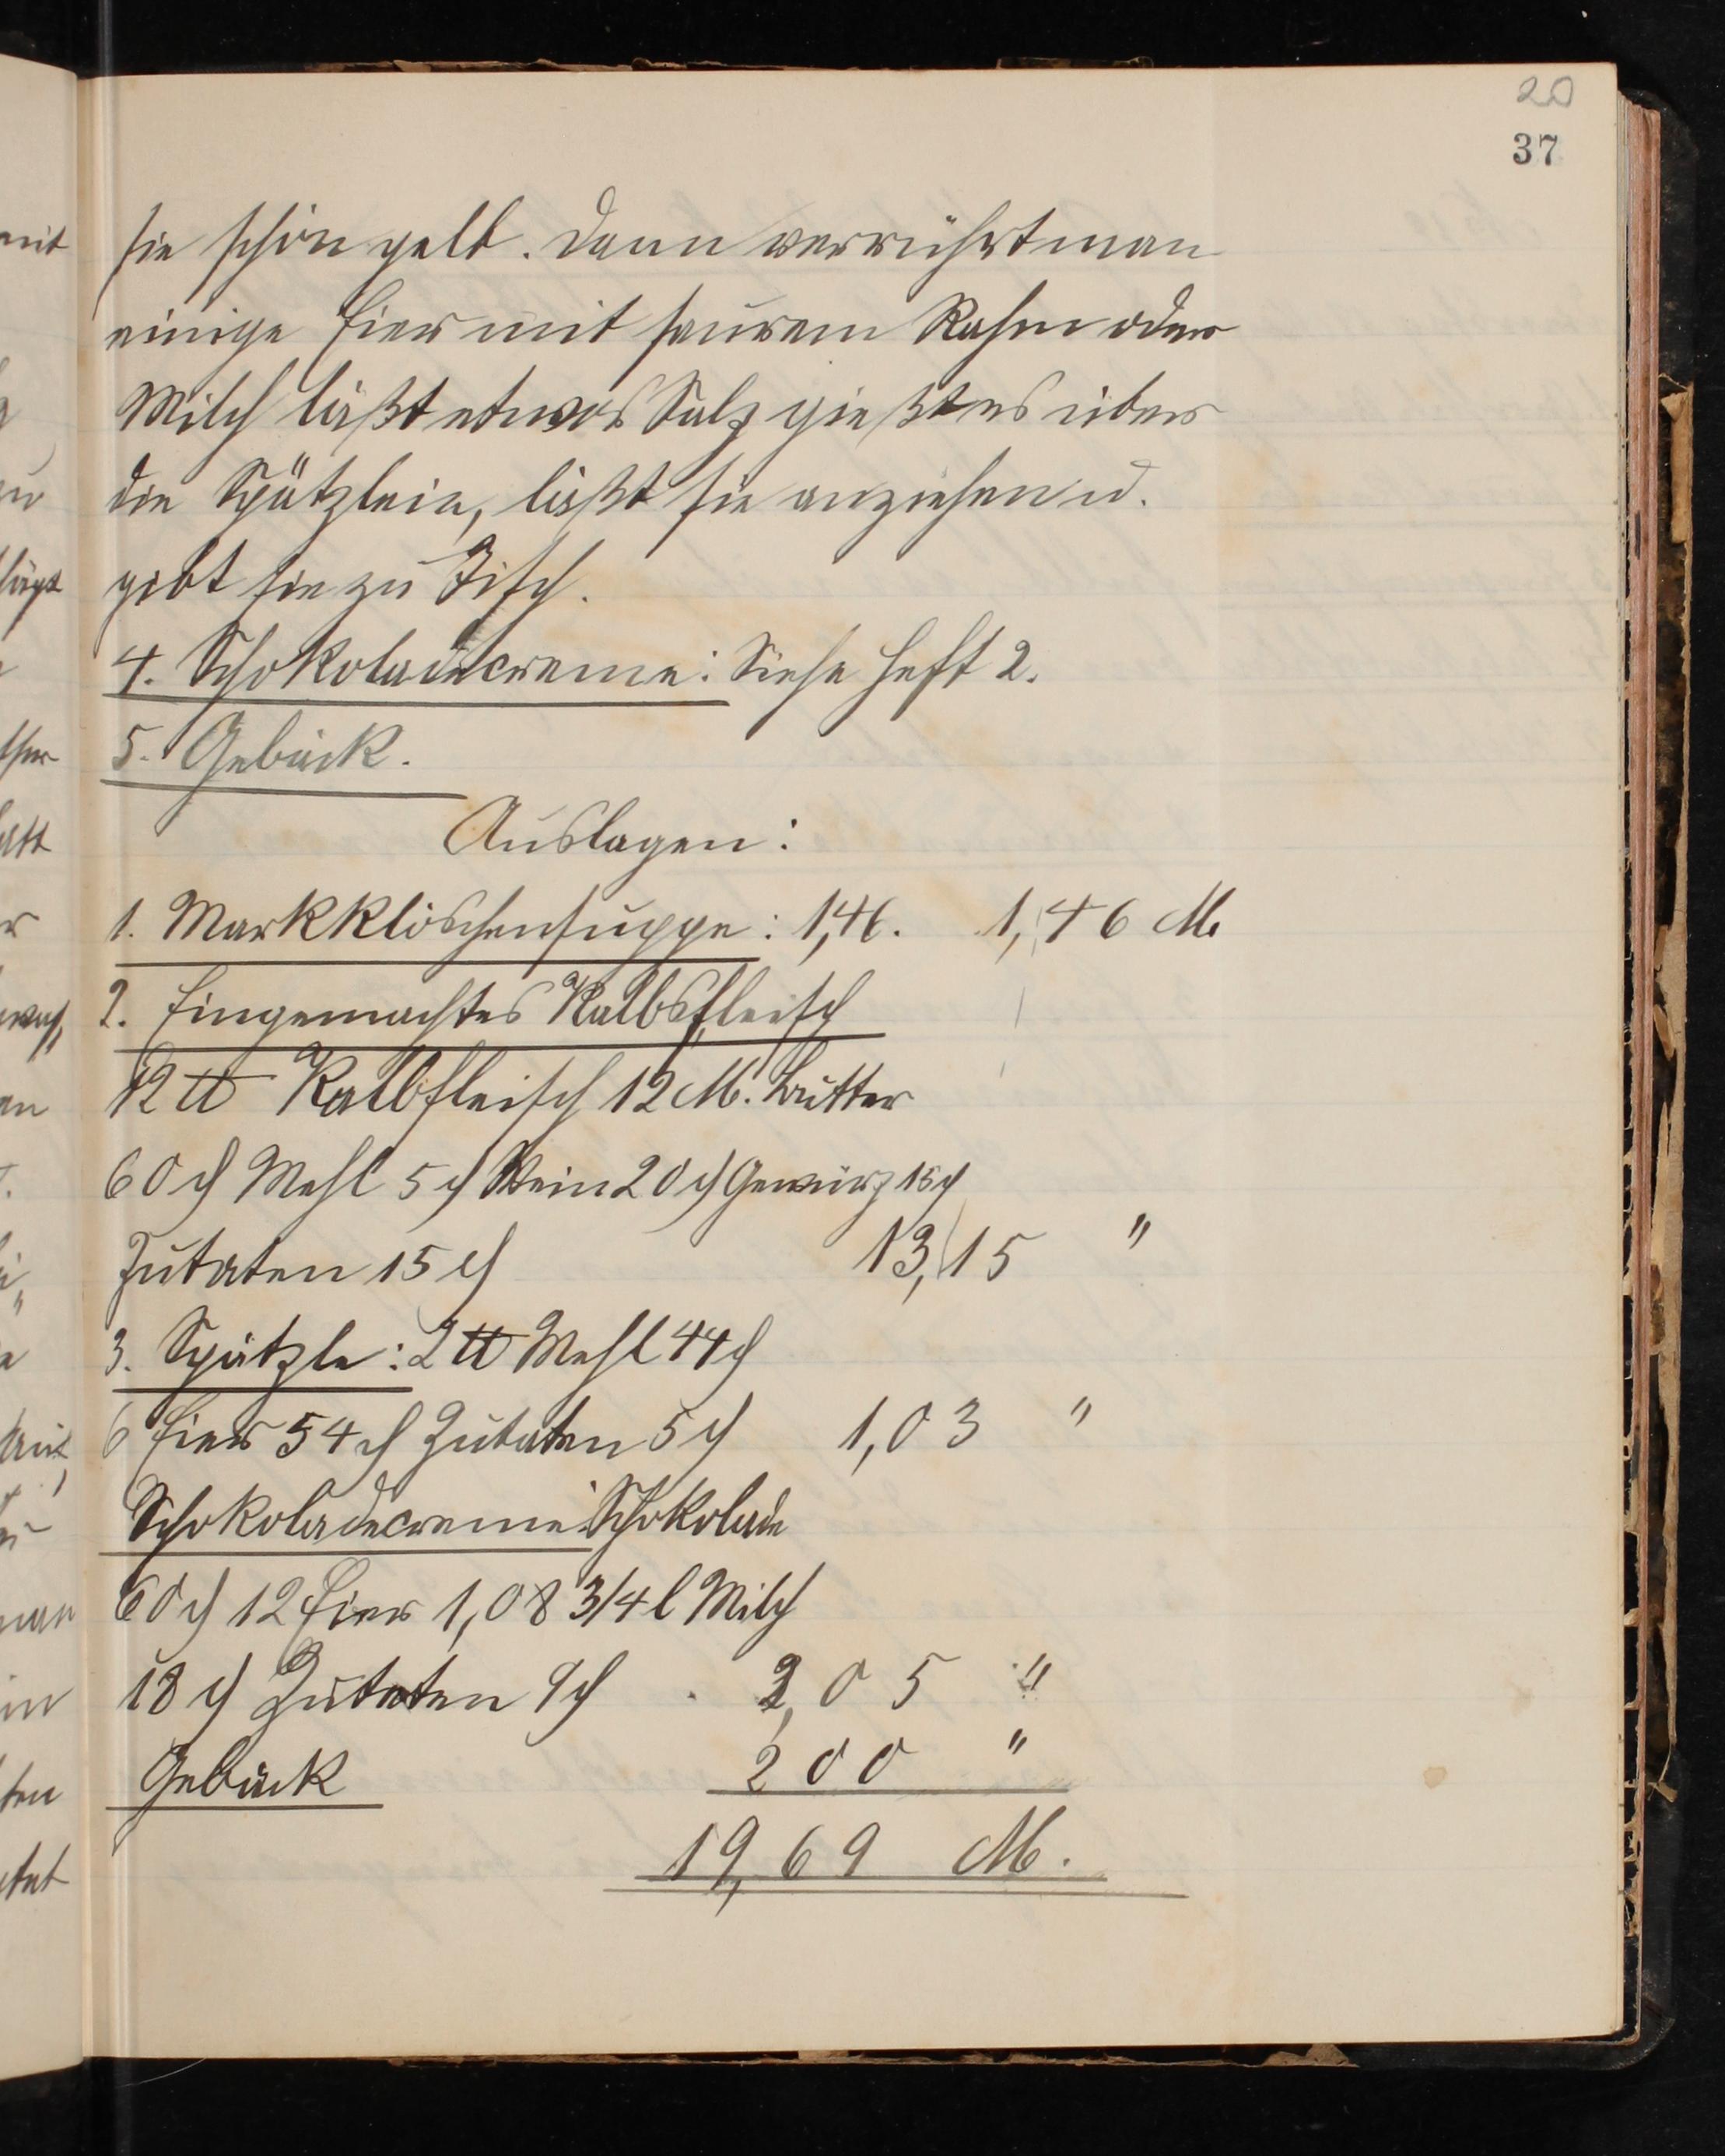 20
37
sie schön gelb. Dann verrührt man
einige Eier mit saurem Rahm oder
Milch läßt etwas Salz gießt es über
die Spätzlein, läßt sie anziehen u.
gibt sie zu Tisch.
4. Schokoladecreme: Siehe Heft 2.
5. Gebäck.
Auslagen:
1. Markklöschensuppe: 1,46. 1,46 M.
2. Eingemachtes Kalbsfleisch
12 ℔ Kalbfleisch 12 M. Butter
60 ₰ Mehl 5 ₰ Wein 20 ₰ Gewürz 15 ₰
Zutaten 15 ₰ 13,15 "
3. Spätzle: 2 ℔ Mehl 44 ₰
6 Eier 54 ₰ Zutaten 5 ₰ 1,03 "
Schokoladecreme: Schokolade
60 ₰ 12 Eier 1,08 3/4 l Milch
18 ₰ Zutaten 9 ₰ 2,05 "
Gebäck 2 00 "
19,69 M.